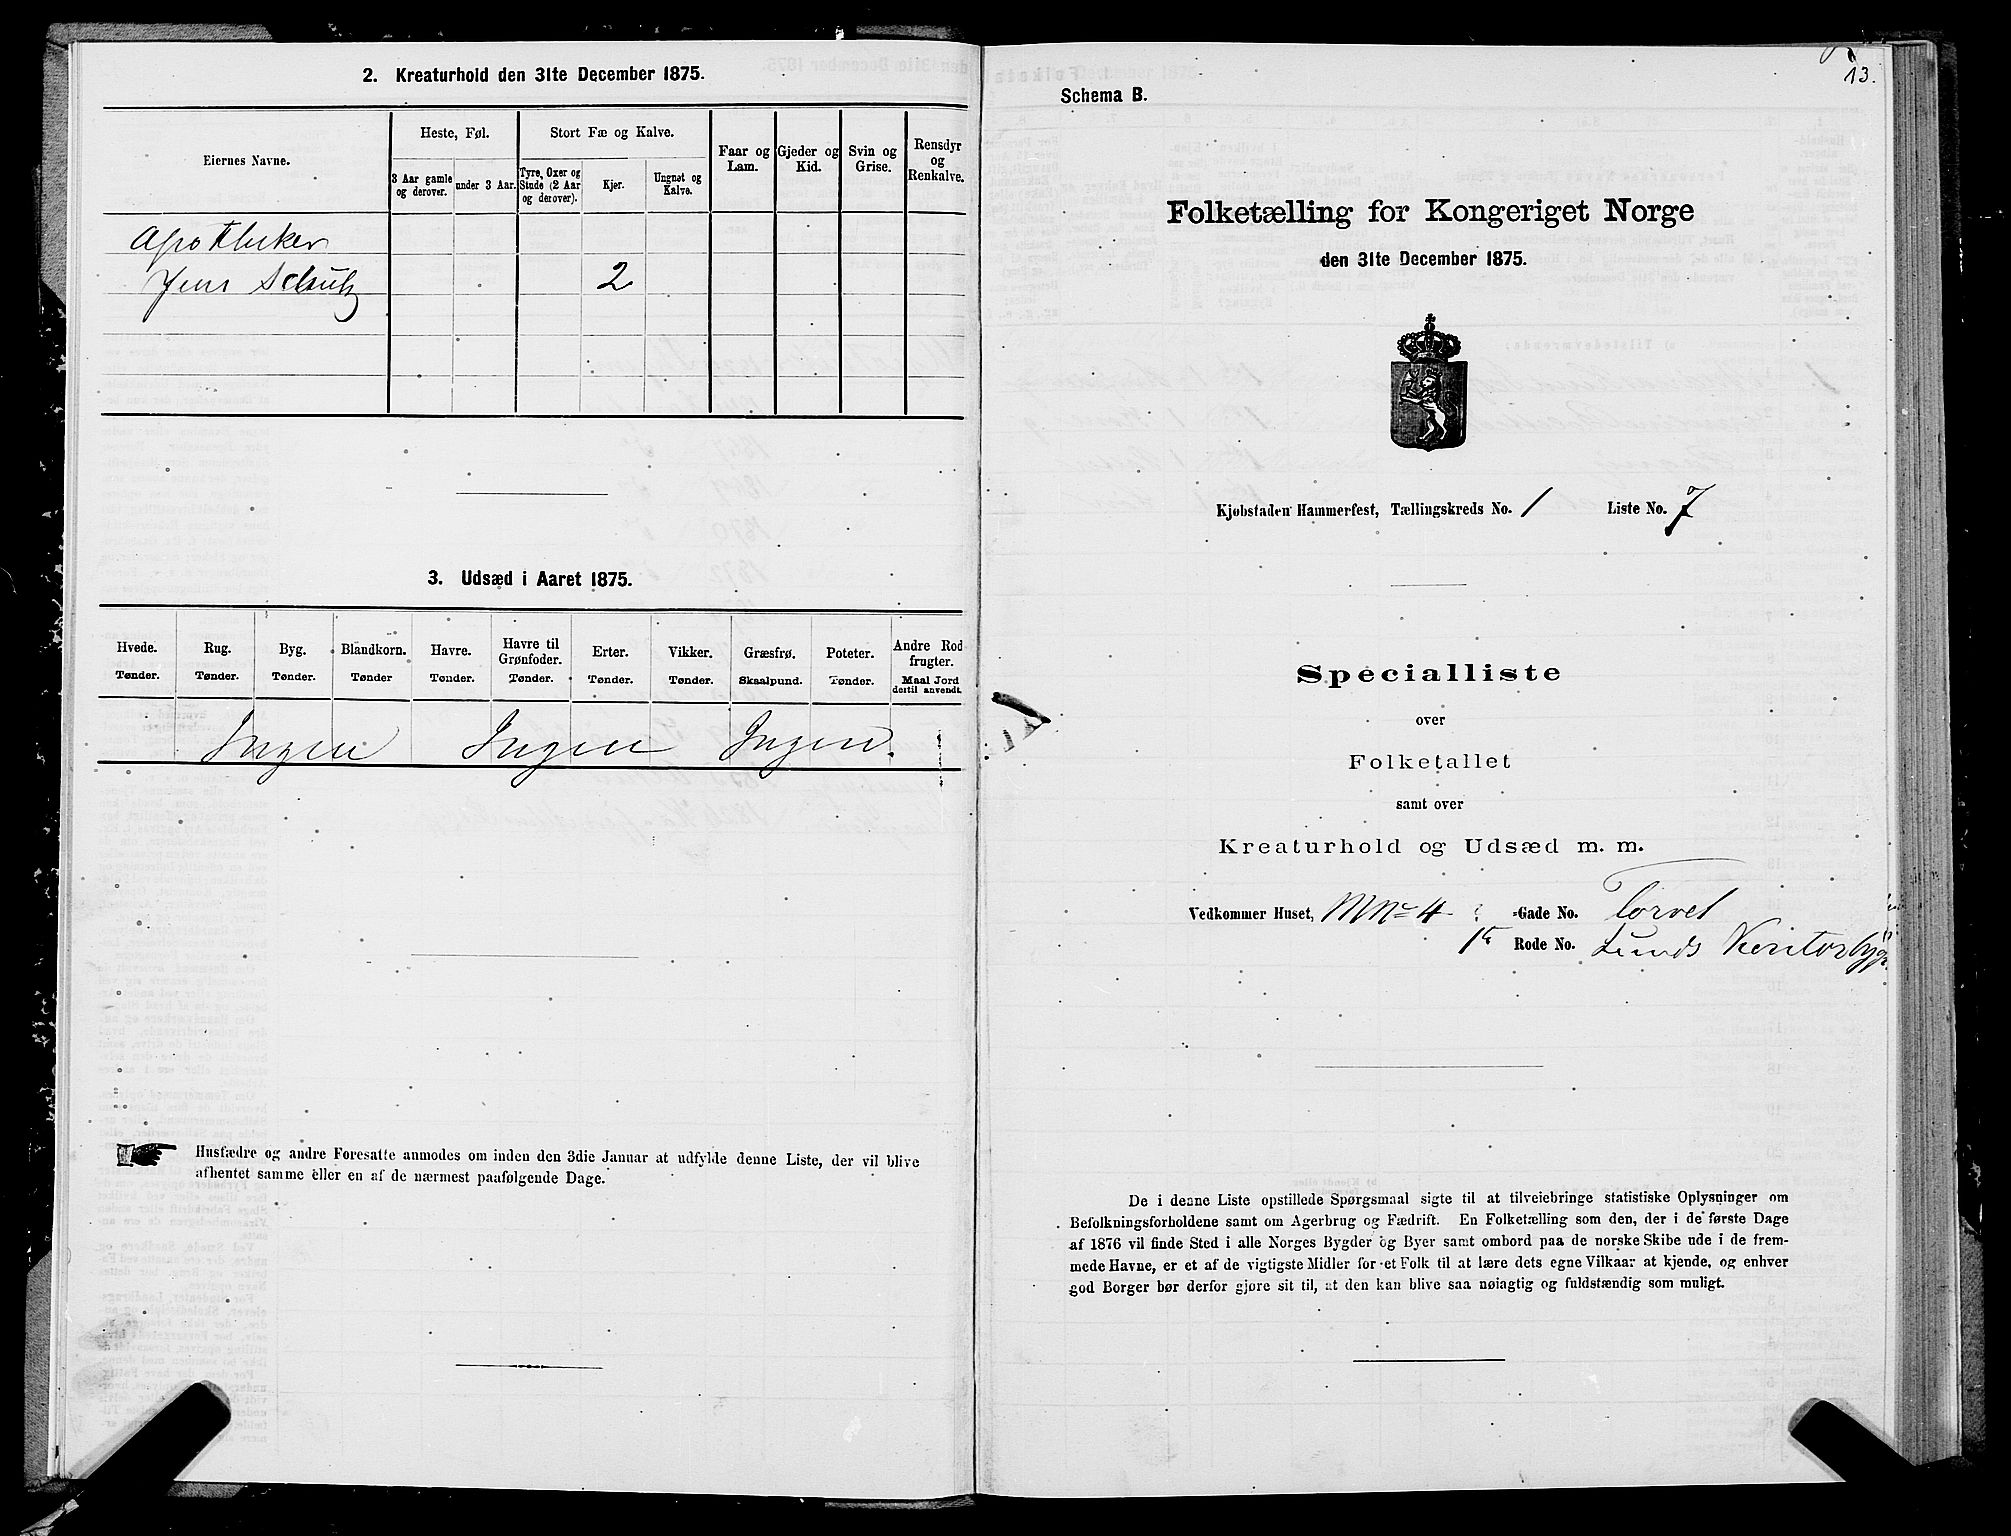 2. Kreaturhold den 31te December 1875.
Eiernes Navne.
Heste, Føl.
Stort Fæ og Kalve.
Faar og Lam.
Gjeder og Kid.
Svin og Grise.
Rensdyr og Renkalve.
3 Aar gamle og derover.
under 3 Aar.
Tyre, Oxer og Stude (2 Aar og derover).
Kjør.
Ungnøt og Kalve.
Apotheker
Jens Schulz 2
3. Udsæd i Aaret 1875.
Hvede. Tønder.
Rug. Tønder.
Byg. Tønder.
Blandkorn. Tønder
Havre. Tønder.
Havre til Grønfoder. Tønder.
Erter. Tønder.
Vikker. Tønder.
Græsfrø. Skaalpund.
Poteter. Tønder.
Andre Rod frugter. Maal Jord dertil anvendt.
Ingen Ingen Ingen.
Husfædre og andre Foresatte anmodes om inden den 3die Januar at udfylde denne Liste, der vil blive
afhentet samme eller en af de nærmest paafølgende Dage.
13.
Schema B.
Folketælling for Kongeriget Norge
den 31te December 1875.
Kjøbstaden Hammerfest, Tællingskreds No. 1 Liste No. 7
Specialliste
over
Folketallet
samt over
Kreaturhold og Udsæd m. m.
Vedkommer Huset, MNo 4 -Gade No. Torvet
1te Rode No. Lunds Kontorbygn.
De i denne Liste opstillede Spørgsmaal sigte til at tilveiebringe statistiske Oplysninger om
Befolkningsforholdene samt om Agerbrug og Fædrift. En Folketælling som den, der i de første Dage
af 1876 vil finde Sted i alle Norges Bygder og Byer samt ombord paa de norske Skibe ude i de frem-
mede Havne, er et af de vigtigste Midler for et Folk til at lære dets egne Vilkaar at kjende, og enhver
god Borger bør derfor gjøre sit til, at den kan blive saa nøiagtig og fuldstændig som muligt.